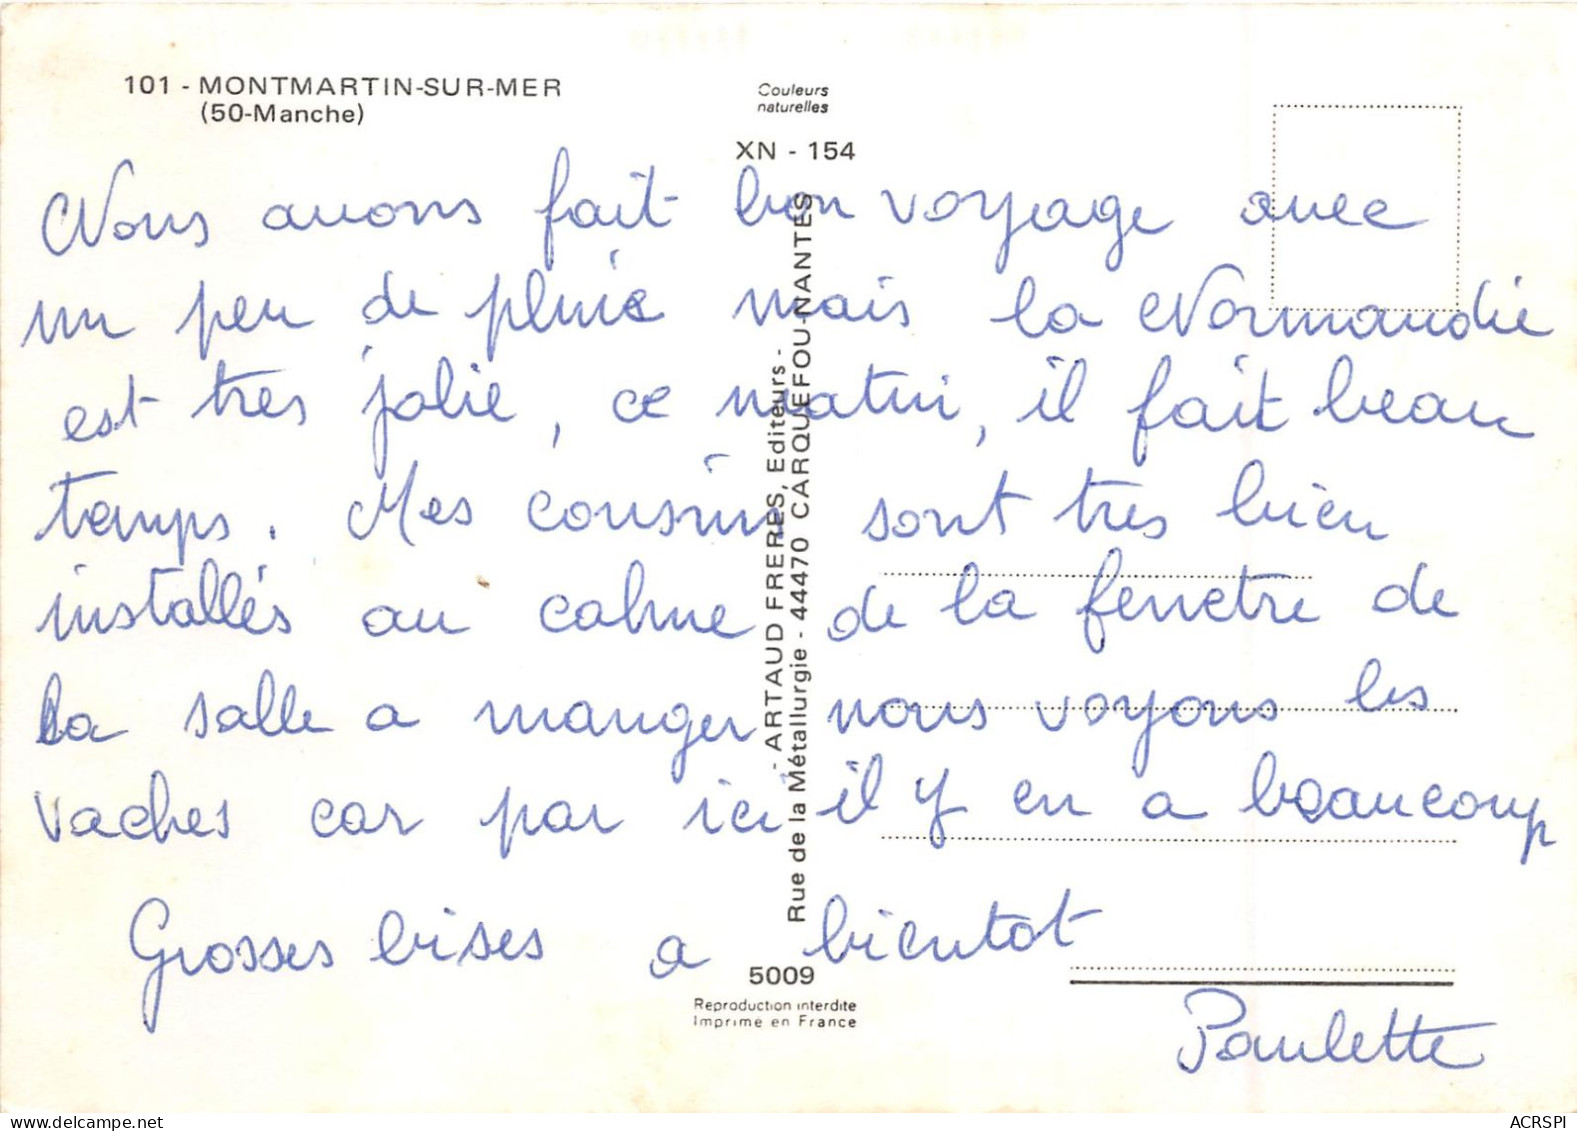 101 - MONTMARTIN-SUR-MER
(50-Manche)
Couleurs
naturelles
XN - 154
Nous avons fait bon voyage avec
un peu de pluie mais la Normandie
est tres jolie, ce matin, il fait beau
temps. Mes cousins sont tres bien
installés au calme de la fenetre de
la salle a manger nous voyons les
vaches car par ici il y en a beaucoup
Grosses bises a bientot
Paulette
- ARTAUD FRERES, Editeurs -
Rue de la Métallurgie - 44470 CARQUEFOU-NANTES
5009
Reproduction interdite
Imprimé en France
www.delcampe.net
ACRSPI